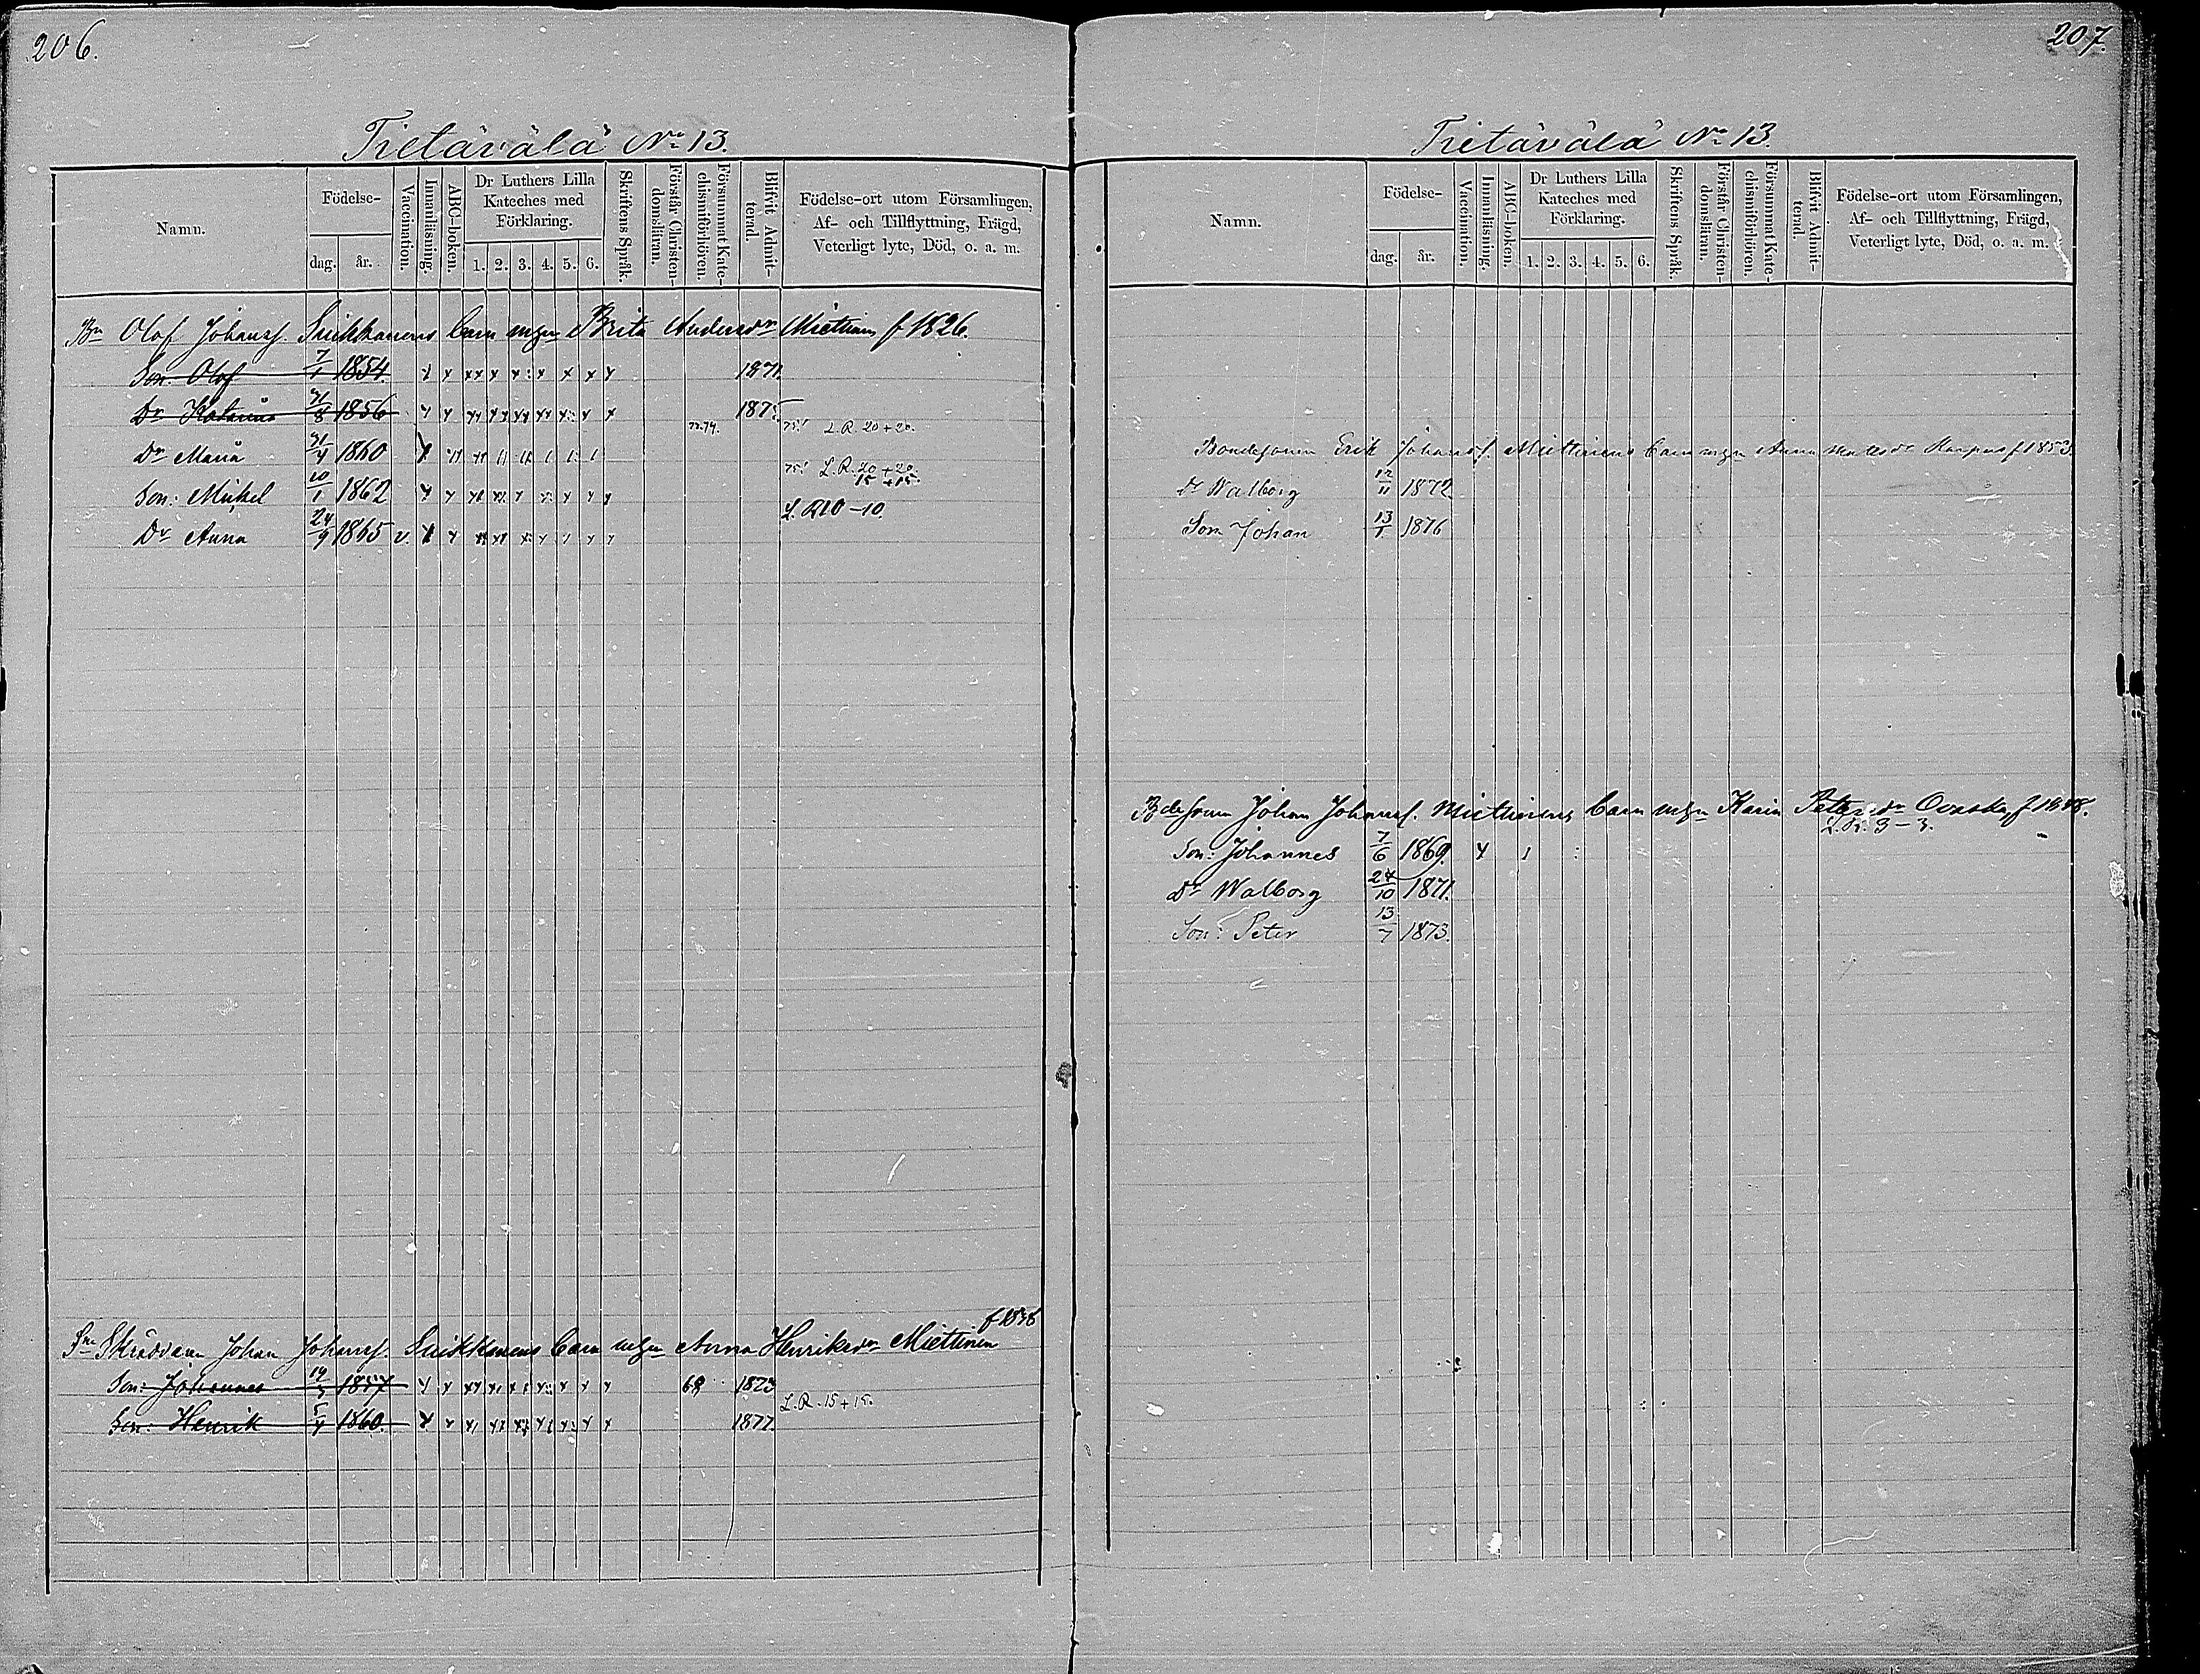 206.
Tietävälä No 13.
Namn.
Födelse-
dag.
år.
Vaccination.
Innanläsning.
ABC-boken.
Dr Luthers Lilla Kateches med Förklaring.
1. 2. 3. 4. 5. 6.
Skriftens Språk.
Förstår Christen-domsläran.
Försummat Kate-chismiförhören.
Blifvit Admit-terad.
Födelse-ort utom Församlingen, Af- och Tillflyttning, Frägd, Veterligt lyte, Död, o. a. m.
Bn Olof Johanss. Suikkanens barn m hn Brita Andersdr Miettinen f 1826.
Son: Olof 7/1 1854. 1871.
Dr Katarina 31/8 1856 1875.
73.74. 75! L.R. 20+20.
Dr Maria 31/4 1860
75! L.R. 20+20. 15+15.
Son: Mickel 10/1 1862
L. R 10-10.
Dr Anna 24/9 1865 v.
Sn Skräddaren Johan Johanss. Suikkanens barn m hn Anna Henriksdr Miettinen f 1836
Son: Johannes 19/3 1857 69 1873
L.R. 15+15.
Son: Henrik 5/4 1860. 1877.
207.
Tietävälä No 13.
Namn.
Födelse-
dag.
år.
Vaccination.
Innanläsning.
ABC-boken.
Dr Luthers Lilla Kateches med Förklaring.
1. 2. 3. 4. 5. 6.
Skriftens Språk.
Förstår Christen-domsläran.
Försummat Kate-chismiförhören.
Blifvit Admit-terad.
Födelse-ort utom Församlingen, Af- och Tillflyttning, Frägd, Veterligt lyte, Död, o. a. m.
Bondesonen Erik Johanss. Miettinens barn m hn Anna Mattsdr f 1853.
Dr Walborg 12/11 1872
Son Johan 13/1 1876
Bdesonen Johan Johanss. Miettinens barn m hn Karin Petersdr Ovaska, f 1848.
L. R. 3-3.
Son: Johannes 7/6 1869.
Dr Walborg 24/10 1871.
Son: Peter 13/7 1873.